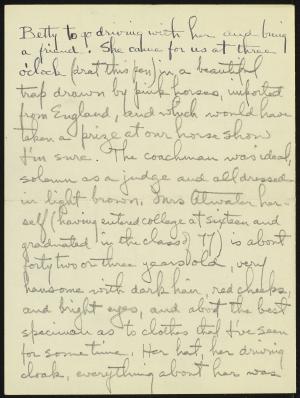 Betty to go driving with her and bring
a friend! She came for us at three
o'clock (drat this pen) in a beautiful
trap drawn by pink horses, imported
from England, and which would have
taken a prize at our horse show
I'm sure. The coachman was ideal,
solemn as a judge and all dressed
in light brown. Mrs Atwater her-
self (having entered college at sixteen and
graduated in the class of '77) is about
forty two or three years old, very
hansome with dark hair, red cheeks,
and bright eyes, and about the best
speciman as to clothes that I've seen
for some time. Her hat, her driving
cloak, everything about her was